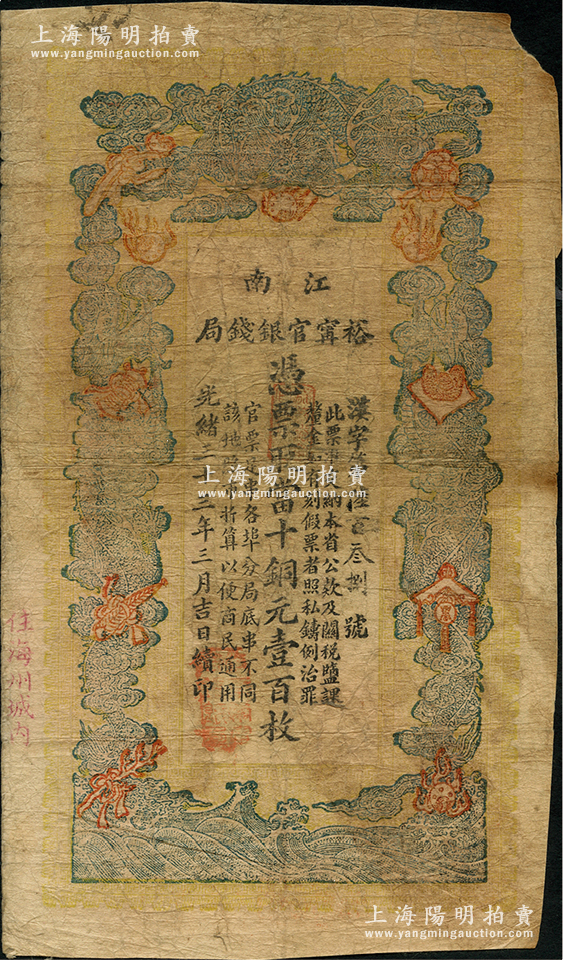 上海陽明拍賣
www.yangmingauction.com
江南
裕甯官銀錢局
漢字 叁捌號
此票 納本省公款及關稅鹽課
釐金 刻假票者照私鑄例治罪
憑票 當十銅元壹百枚
官票 各埠分局底串不同
該 折算以便商民通用
光緒三 二年三月吉日續印
住海州城內
上海陽明拍賣
www.yangmingauction.com
上海陽明拍賣
www.yangmingauction.com